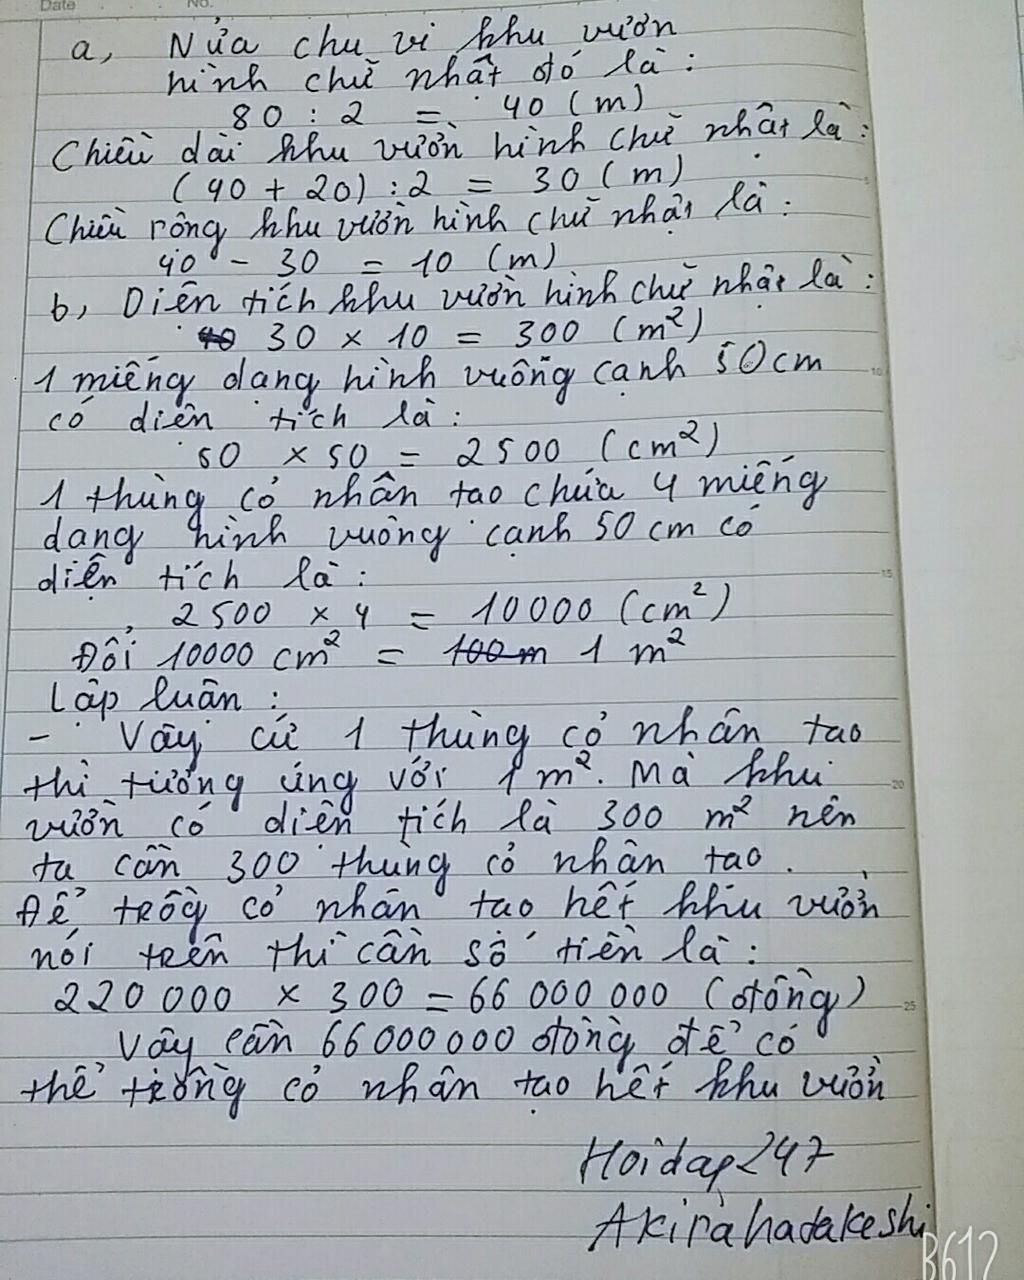 Date No.
a, Nửa chu vi khu vườn
hình chữ nhật đó là :
80 : 2 = 40 (m)
Chiều dài khu vườn hình chữ nhật là :
(40 + 20) : 2 = 30 (m)
Chiều rộng khu vườn hình chữ nhật là :
40 - 30 = 10 (m)
b, Diện tích khu vườn hình chữ nhật là :
40 30 x 10 = 300 (m²)
1 miếng dạng hình vuông cạnh 50 cm
có diện tích là :
50 x 50 = 2500 (cm²)
1 thùng cỏ nhân tạo chứa 4 miếng
dạng hình vuông cạnh 50 cm có
diện tích là :
2500 x 4 = 10000 (cm²)
Đổi 10000 cm² = 100 m 1 m²
Lập luận :
- Vậy cứ 1 thùng cỏ nhân tạo
thì tương ứng với 1 m². Mà khu
vườn có diện tích là 300 m² nên
ta cần 300 thùng cỏ nhân tạo.
Để trồg cỏ nhân tạo hết khu vườn
nói trên thì cần số tiền là :
220 000 x 300 = 66 000 000 (đồng)
Vậy cần 66 000 000 đồng để có
thể trồng cỏ nhân tạo hết khu vườn
Hoidap247
Akirahatakeshi
B612